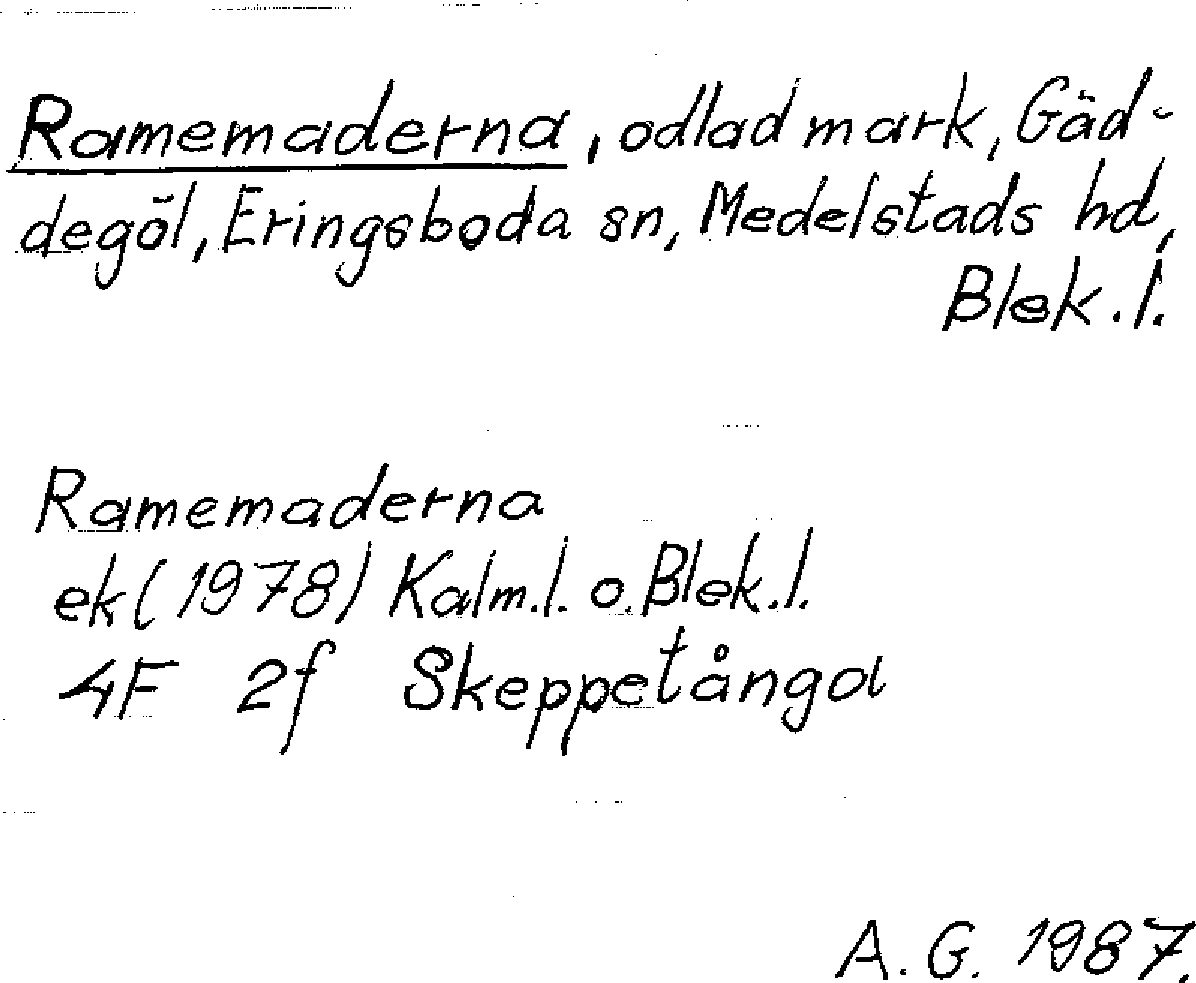 Ramemaderna, odlad mark, Gäd-
degöl, Eringsboda sn, Medelstads hd,
Blek.l.
Ramemaderna
ek (1978) Kalm.l. o. Blek.l.
4F 2f Skeppetånga
A.G. 1987.